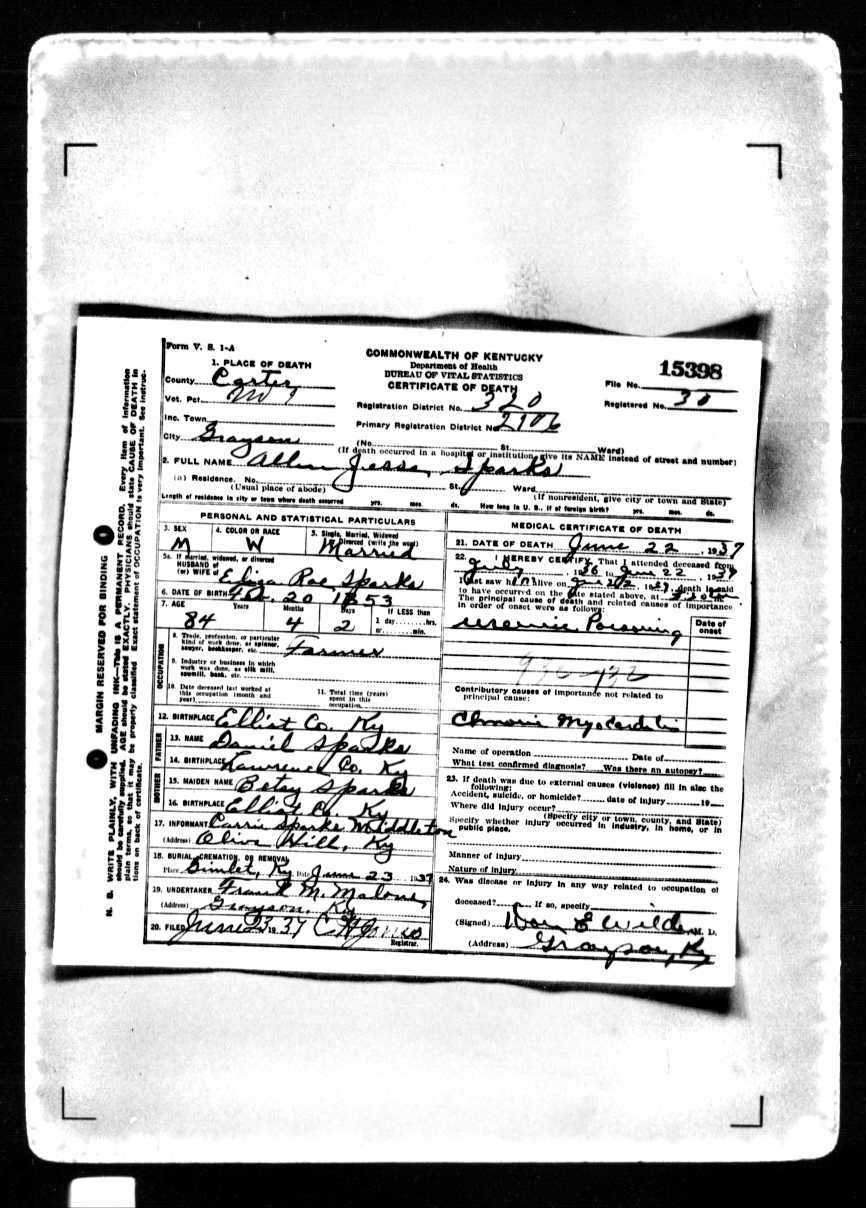 Form V. S. 1-A
COMMONWEALTH OF KENTUCKY
Department of Health
BUREAU OF VITAL STATISTICS
CERTIFICATE OF DEATH
15398
File No.
Registered No. 30
1. PLACE OF DEATH
County Carter
Vot. Pct.
Inc. Town
City Grayson
Registration District No. 320
Primary Registration District No. 2106
(No. St. Ward)
(If death occurred in a hospital or institution, give its NAME instead of street and number)
2. FULL NAME Allen Jesse Sparks
(a) Residence. No. St. Ward
(Usual place of abode) (If nonresident, give city or town and State)
Length of residence in city or town where death occurred yrs. mos. ds. How long in U. S., if of foreign birth? yrs. mos. ds.
PERSONAL AND STATISTICAL PARTICULARS
3. SEX M
4. COLOR OR RACE W
5. Single, Married, Widowed or Divorced (write the word) Married
5a. If married, widowed, or divorced
HUSBAND of
(or) WIFE of Eliza Rae Sparks
6. DATE OF BIRTH Feb. 20 1853
7. AGE Years Months Days If LESS than
84 4 2 1 day hrs.
or min.
OCCUPATION
8. Trade, profession, or particular
kind of work done, as spinner,
sawyer, bookkeeper, etc. Farmer
9. Industry or business in which
work was done, as silk mill,
sawmill, bank, etc.
10. Date deceased last worked at
this occupation (month and
year)
11. Total time (years)
spent in this
occupation
12. BIRTHPLACE Elliot Co. Ky
FATHER
13. NAME Daniel Sparks
14. BIRTHPLACE Lawrence Co. Ky
MOTHER
15. MAIDEN NAME Betsy Sparks
16. BIRTHPLACE Elliot Co. Ky
17. INFORMANT Carrie Sparks Middleton
(Address) Olive Hill, Ky
18. BURIAL, CREMATION, OR REMOVAL
Place Gimlet, Ky Date June 23 1937
19. UNDERTAKER Frank M. Malone,
(Address) Grayson, Ky
20. FILED June 23 1937 C H Jones
Registrar.
MEDICAL CERTIFICATE OF DEATH
21. DATE OF DEATH June 22, 1937
22. I HEREBY CERTIFY, That I attended deceased from
July, 1936 to June 22, 1937
I last saw him alive on June 22, 1937 death is said
to have occurred on the date stated above, at m.
The principal cause of death and related causes of importance
in order of onset were as follows:
Date of
onset
Uremic Poisoning
Contributory causes of importance not related to
principal cause:
Chronic Myocarditis
Name of operation Date of
What test confirmed diagnosis? Was there an autopsy?
23. If death was due to external causes (violence) fill in also the
following:
Accident, suicide, or homicide? date of injury 19
Where did injury occur?
(Specify city or town, county, and State)
Specify whether injury occurred in industry, in home, or in
public place.
Manner of injury
Nature of injury
24. Was disease or injury in any way related to occupation of
deceased? If so, specify
(Signed) Don E Wilder M. D.
(Address) Grayson, Ky
MARGIN RESERVED FOR BINDING
N. B. WRITE PLAINLY, WITH UNFADING INK—This is a PERMANENT RECORD. Every item of information
should be carefully supplied. AGE should be stated EXACTLY. PHYSICIANS should state CAUSE OF DEATH in
plain terms, so that it may be properly classified. Exact statement of OCCUPATION is very important. See instruc-
tions on back of certificate.